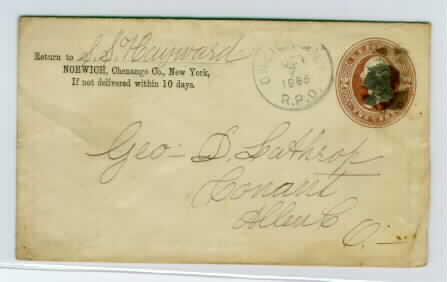 Return to S. S. Hayward
NORWICH, Chenango Co., New York,
If not delivered within 10 days.
R.P.O.
Geo - D. Lathrop
Conant
Allen C
O -